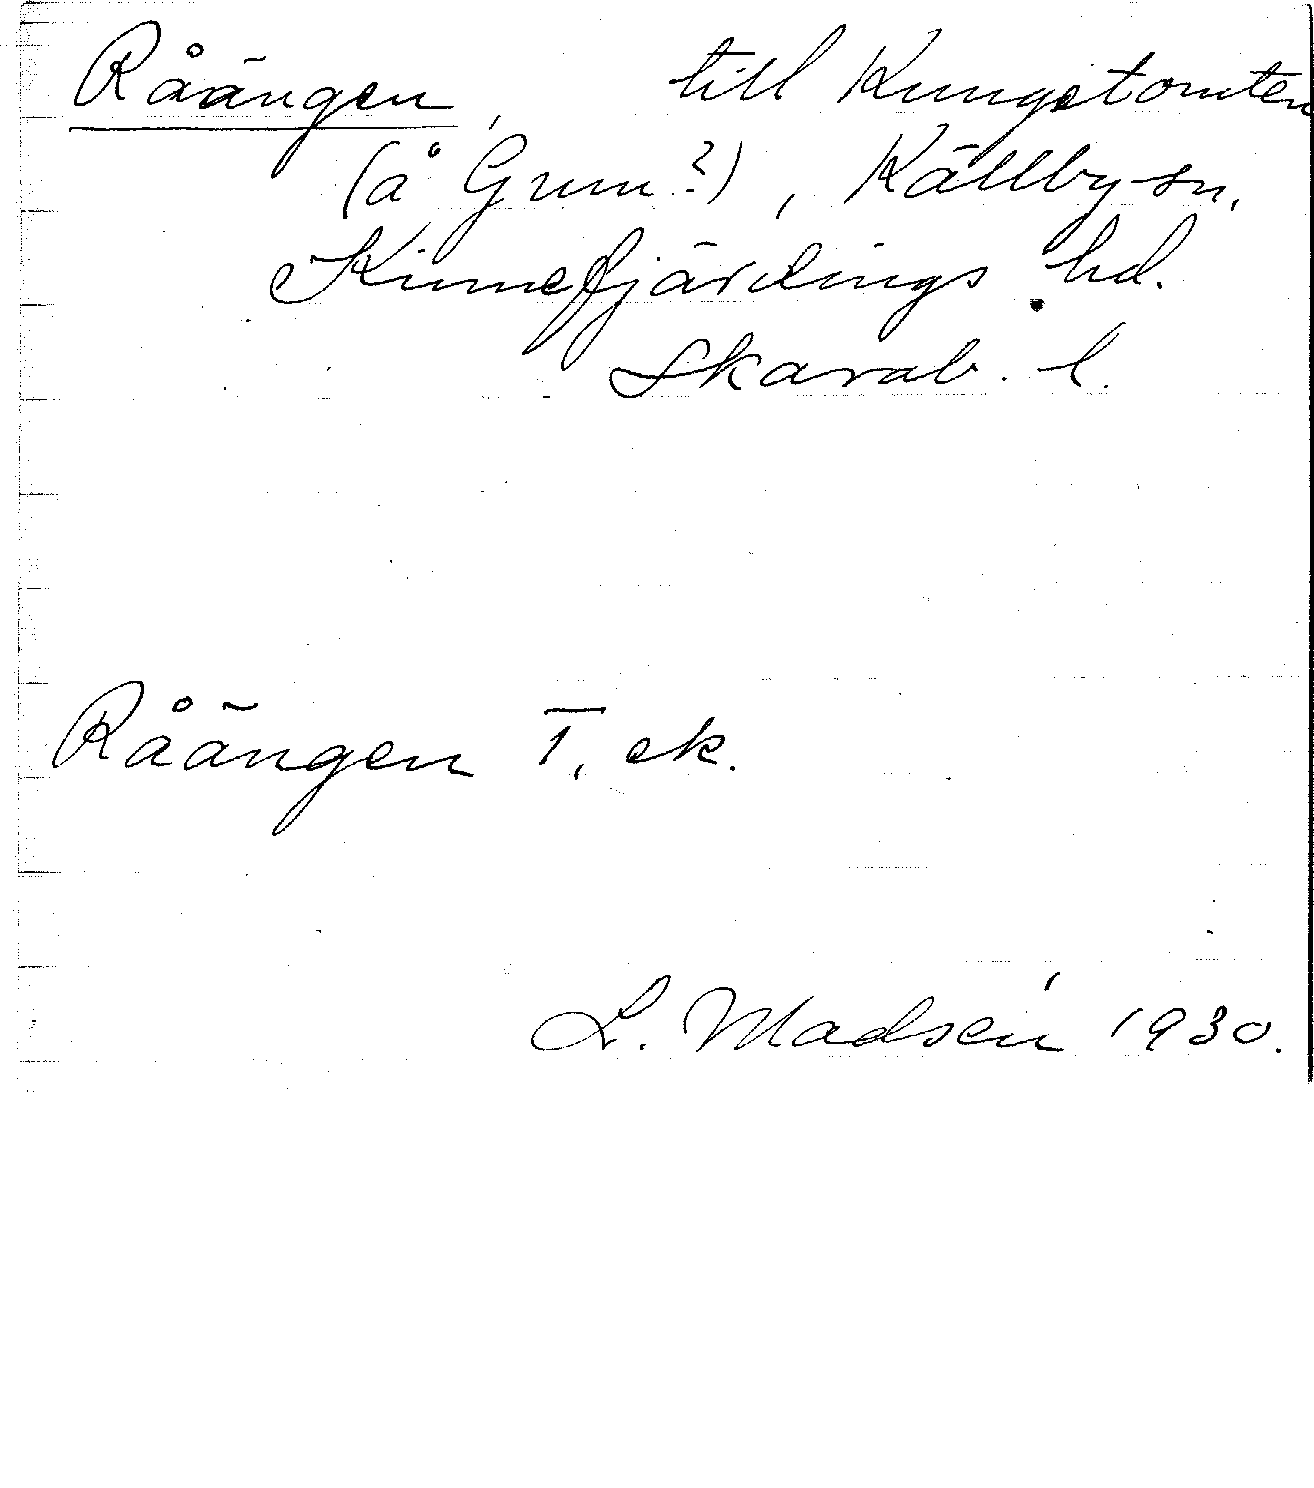 Råängen, till Kungstomten
(å Grum?), Källby sn,
Kinnefjärdings hd.
Skarab. l.
Råängen 1, ek.
L. Madsén 1930.